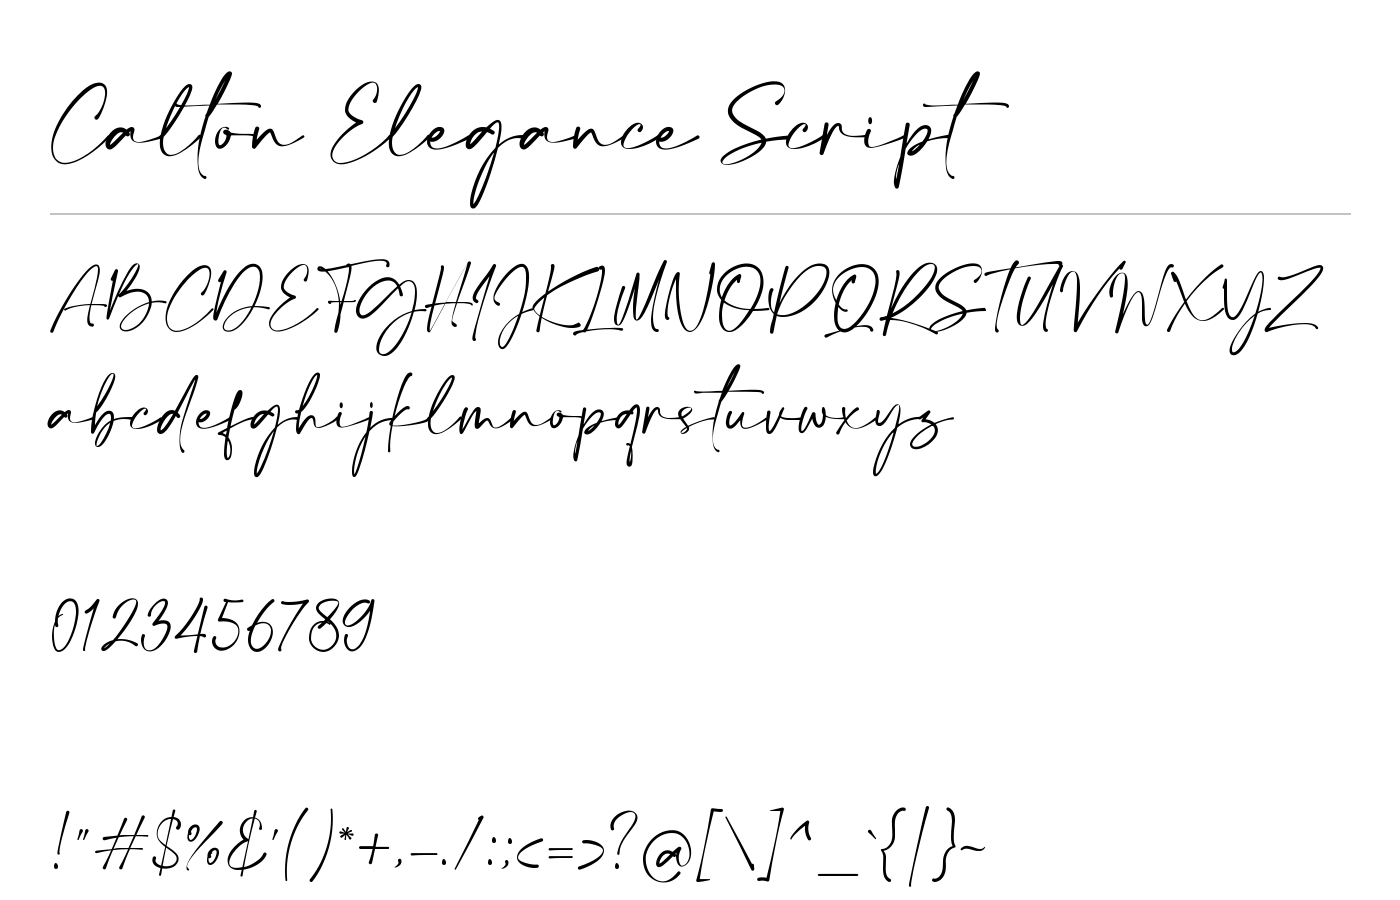 Calton Elegance Script
ABCDEFGHIJKLMNOPQRSTUVWXYZ
abcdefghijklmnopqrstuvwxyz
0123456789
!"#$%&'()*+,-./:;<=>?@[\]^_`{|}~